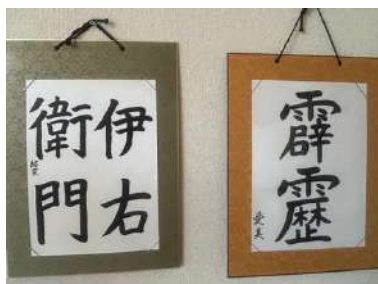 伊右
衛門
霹靂
愛美